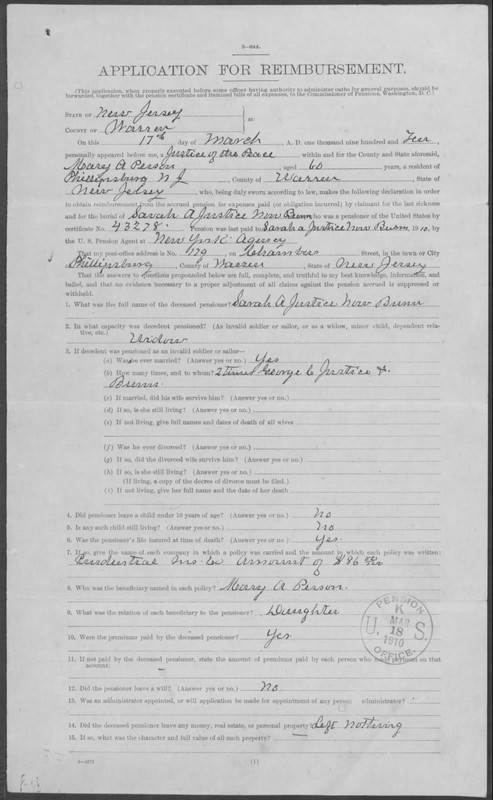 3—044.
APPLICATION FOR REIMBURSEMENT.
(This application, when properly executed before some officer having authority to administer oaths for general purposes, should be
forwarded, together with the pension certificate and itemized bills of all expenses, to the Commissioner of Pensions, Washington, D. C.)
STATE OF New Jersey
ss:
COUNTY OF Warren
On this 17th day of March, A. D. one thousand nine hundred and Ten,
personally appeared before me, a Justice of the Peace within and for the County and State aforesaid,
Mary A Person, aged 60 years, a resident of
Phillipsburg N J, County of Warren, State of
New Jersey, who, being duly sworn according to law, makes the following declaration in order
to obtain reimbursement from the accrued pension for expenses paid (or obligation incurred) by claimant for the last sickness
and for the burial of Sarah A Justice Now Bunn, who was a pensioner of the United States by
certificate No. 43278. Pension was last paid to Sarah A Justice Now Bunn, 1910, by
the U. S. Pension Agent at New York Agency
That my post-office address is No. 179 on Chambers Street, in the town or City
Phillipsburg, County of Warren, State of New Jersey
That the answers to questions propounded below are full, complete, and truthful to my best knowledge, information, and
belief, and that no evidence necessary to a proper adjustment of all claims against the pension accrued is suppressed or
withheld.
1. What was the full name of the deceased pensioner? Sarah A Justice Now Bunn
2. In what capacity was decedent pensioned? (As invalid soldier or sailor, or as a widow, minor child, dependent rela-
tive, etc.)
Widow
3. If decedent was pensioned as an invalid soldier or sailor—
(a) Was he ever married? (Answer yes or no.) Yes
(b) How many times, and to whom? 2 times George C Justice &
Bunn
(c) If married, did his wife survive him? (Answer yes or no.)
(d) If so, is she still living? (Answer yes or no.)
(e) If not living, give full names and dates of death of all wives
(f) Was he ever divorced? (Answer yes or no.)
(g) If so, did the divorced wife survive him? (Answer yes or no.)
(h) If so, is she still living? (Answer yes or no.)
(If living, a copy of the decree of divorce must be filed.)
(i) If not living, give her full name and the date of her death
4. Did pensioner leave a child under 16 years of age? (Answer yes or no.) No
5. Is any such child still living? (Answer yes or no.) No
6. Was the pensioner's life insured at time of death? (Answer yes or no.) Yes
7. If so, give the name of each company in which a policy was carried and the amount in which each policy was written:
Prudential Ins Co Amount of $86
8. Who was the beneficiary named in each policy? Mary A Person
9. What was the relation of each beneficiary to the pensioner? Daughter
10. Were the premiums paid by the deceased pensioner? Yes
11. If not paid by the deceased pensioner, state the amount of premiums paid by each person who made payment on that
account:
12. Did the pensioner leave a will? (Answer yes or no.) No
13. Was an administrator appointed, or will application be made for appointment of any person administrator?
14. Did the deceased pensioner leave any money, real estate, or personal property? Left nothing
15. If so, what was the character and full value of all such property?
(1)
PENSION
K
MAR
U. 18 S.
1910
OFFICE.